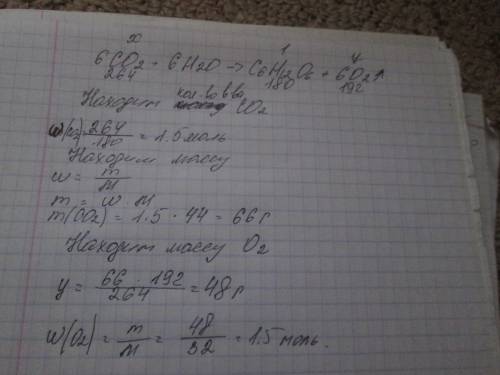 x 1 y
6CO2 + 6H2O → C6H12O6 + 6O2↑
264 180 192
Находим кол.во в.ва CO2
264/180 = 1.5 моль
Находим массу
w = m/M
m = w · M
m(CO2) = 1.5 · 44 = 66 г
Находим массу O2
y = 66 · 192/264 = 48 г
w(O2) = m/M = 48/32 = 1.5 моль.